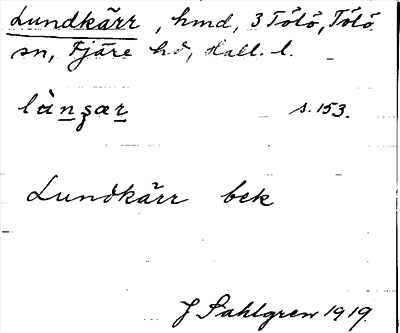 Lundkärr, hmd, 3 Tölö, Tölö
sn, Fjäre hd, Hall. l.
s. 153.
Lundkärr bek
J Sahlgren 1919.